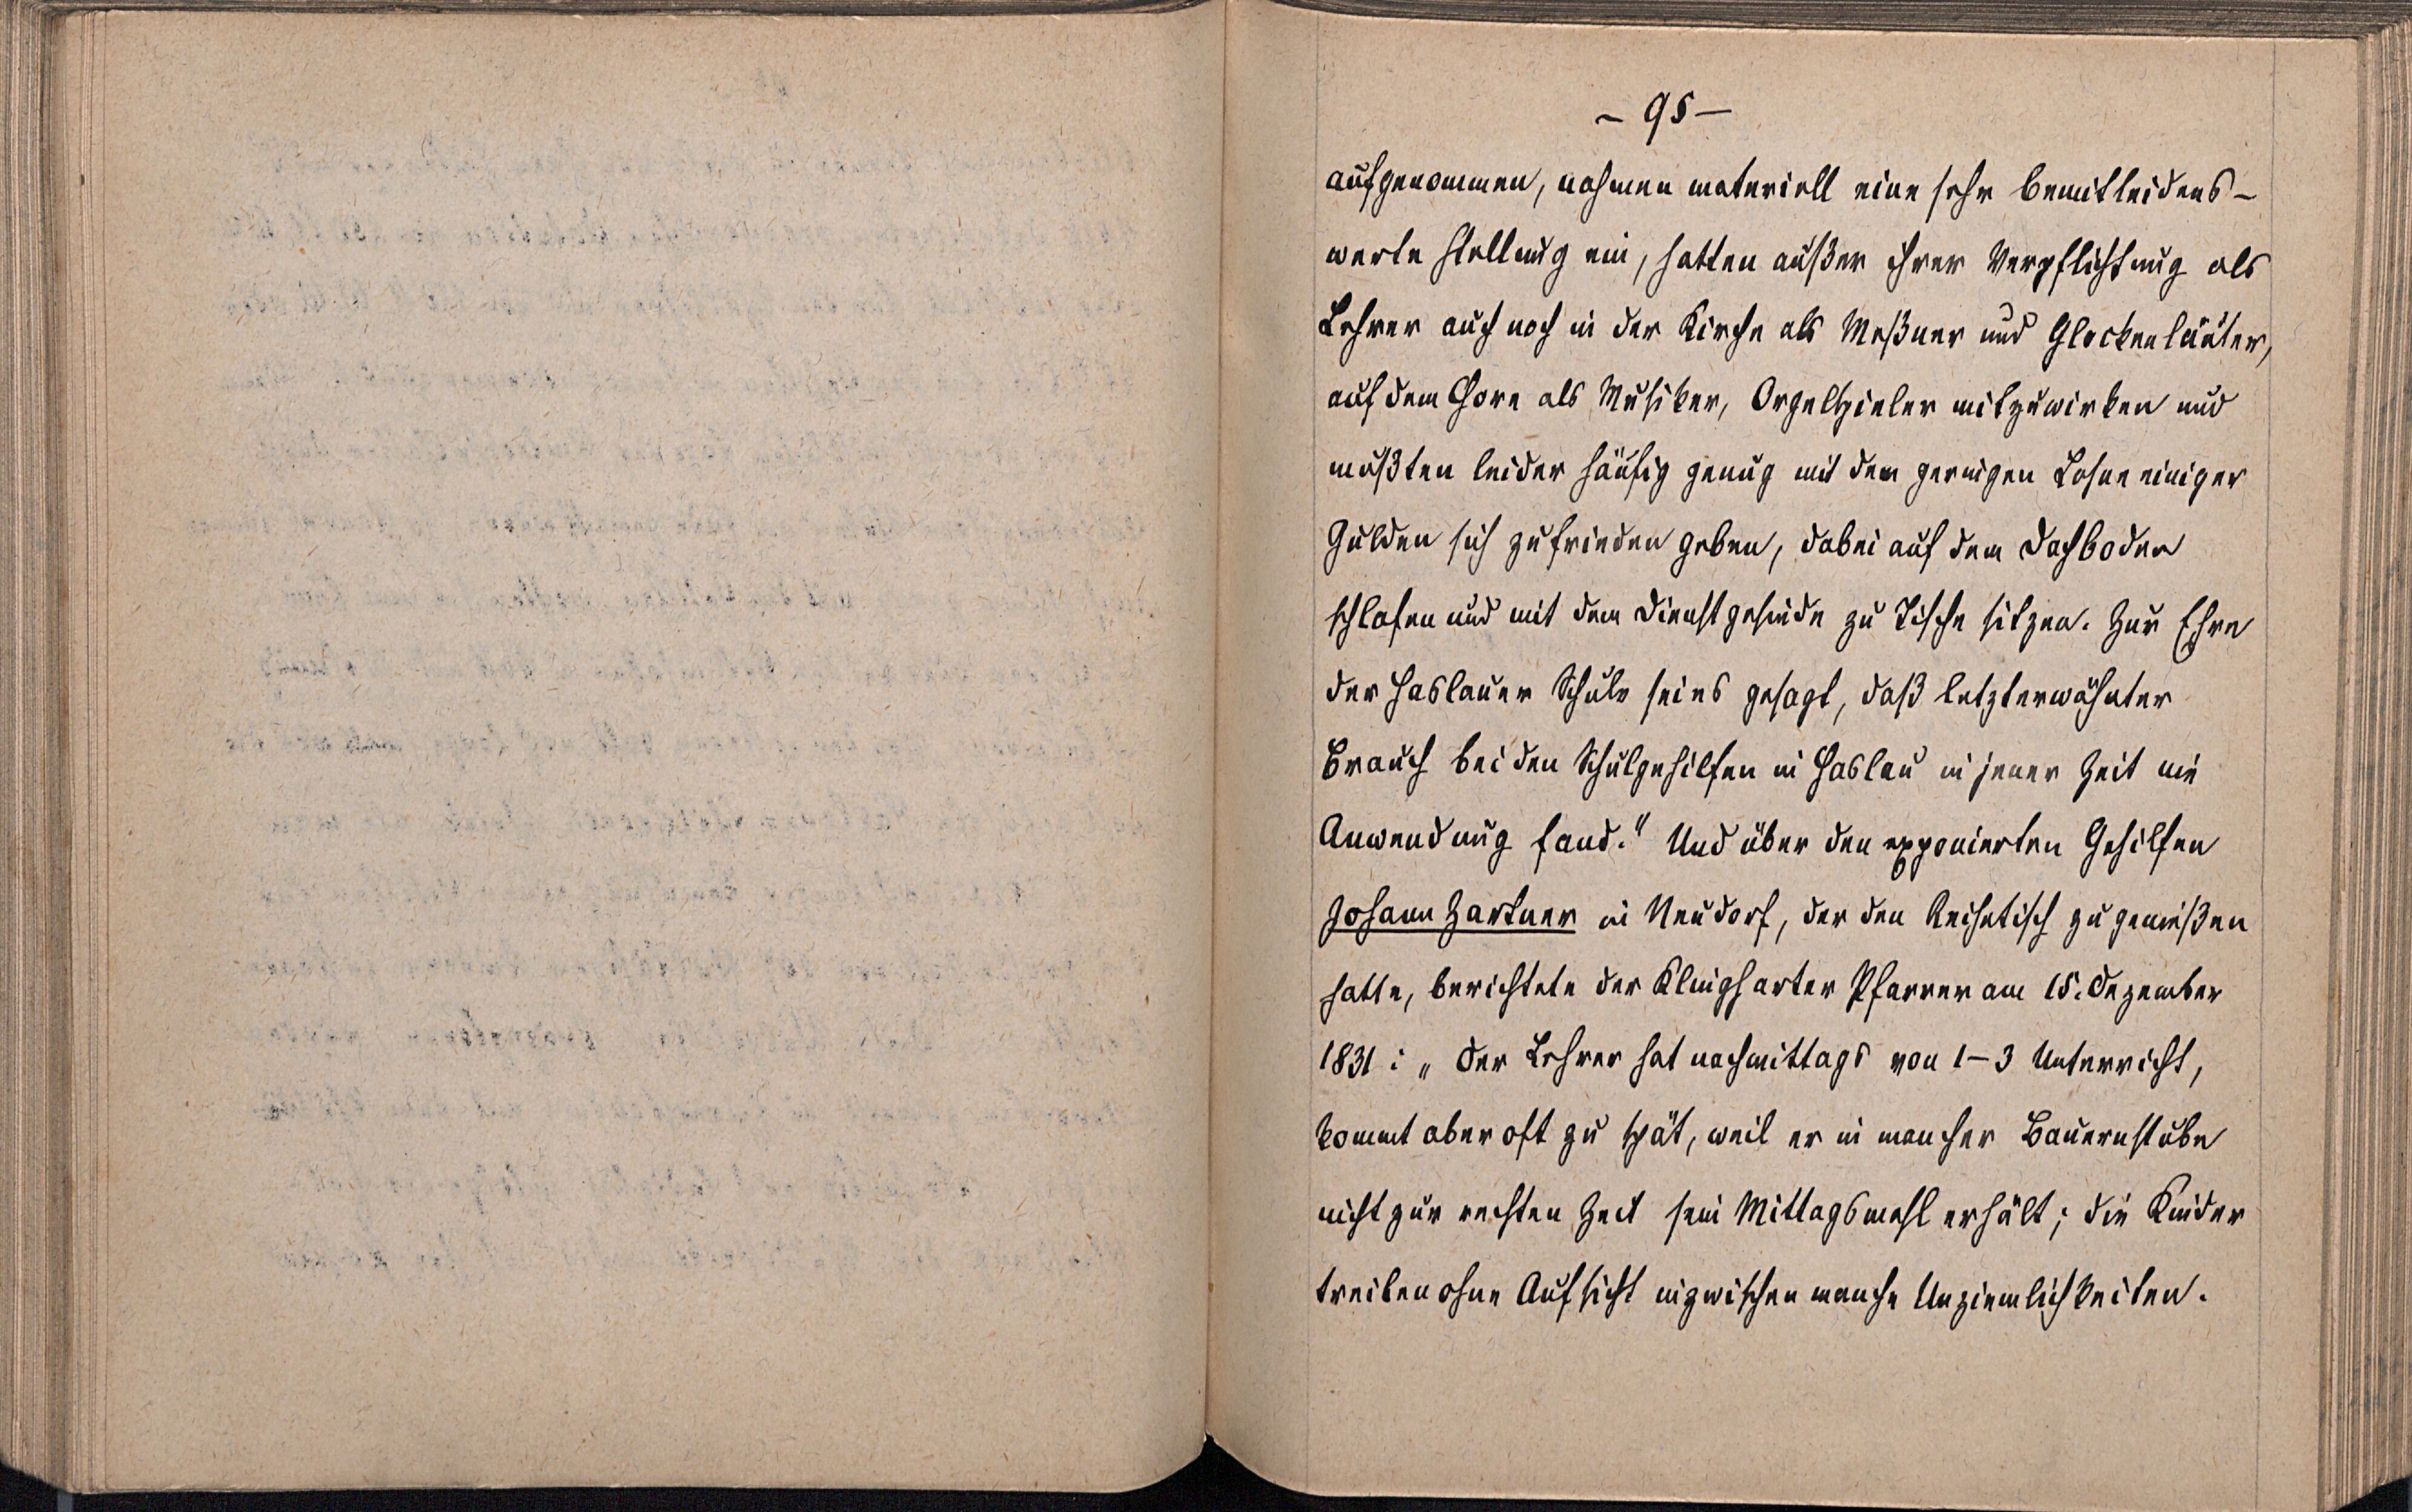 – 95 –
aufgenommen, nahmen materiell eine sehr bemitleidens-
werte Stellung ein, hatten außer ihrer Verpflichtung als
Lehrer auch noch in der Kirche als Meßner und Glockenläuter,
auf dem Chore als Musiker, Orgelspieler mitzuwirken und
mußten leider häufig genug mit dem geringen Lohne einiger
Gulden sich zufrieden geben, dabei auf dem Dachboden
schlafen und mit dem Dienstgesinde zu Tische sitzen. Zur Ehre
der Haslauer Schule sei es gesagt, daß letzterwähnter
Brauch bei den Schulgehilfen in Haslau in jener Zeit nie
Anwendung fand.“ Und über den exponierten Gehilfen
Johann Zartner in Neudorf, der den Reihetisch zu genießen
hatte, berichtete der Klingharter Pfarrer am 15. Dezember
1831: „Der Lehrer hat nachmittags von 1–3 Unterricht,
kommt aber oft zu spät, weil er in mancher Bauernstube
nicht zur rechten Zeit sein Mittagsmahl erhält; die Kinder
treiben ohne Aufsicht inzwischen manche Unziemlichkeiten.